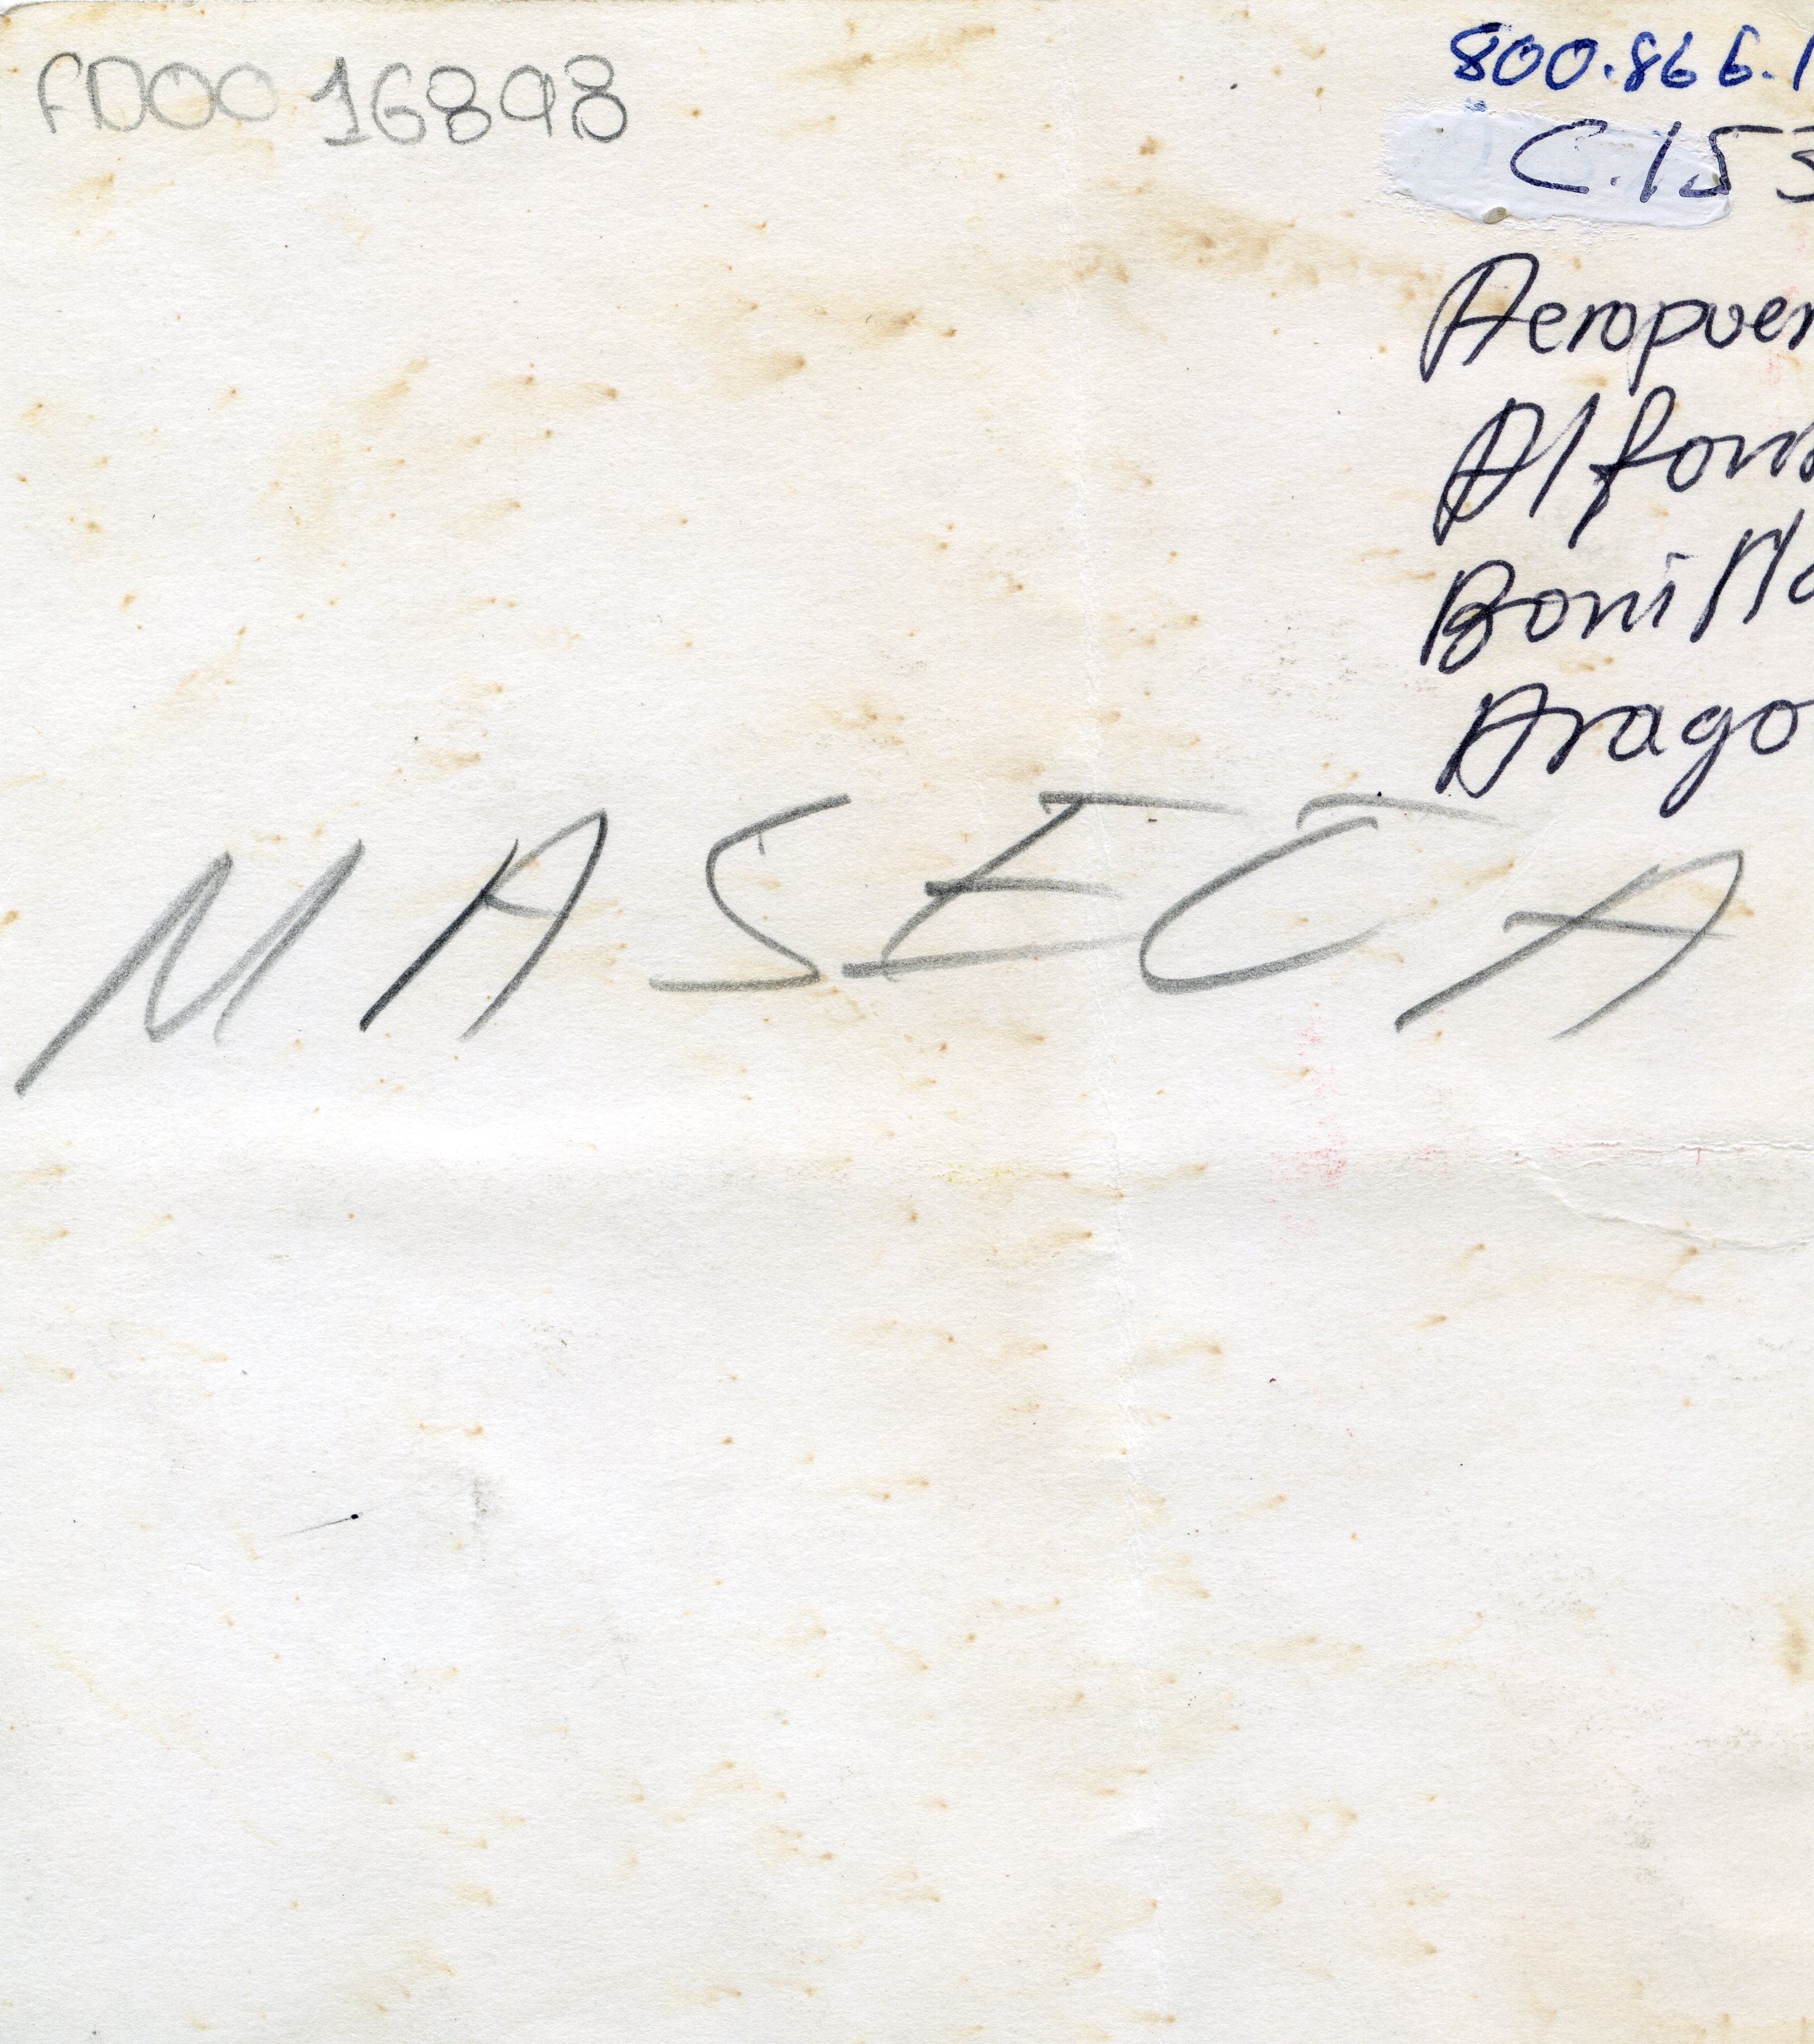 FD0016898
800.866.1
C.153
Aeropuer
Alfons
Bonilla
Arago
MASECA